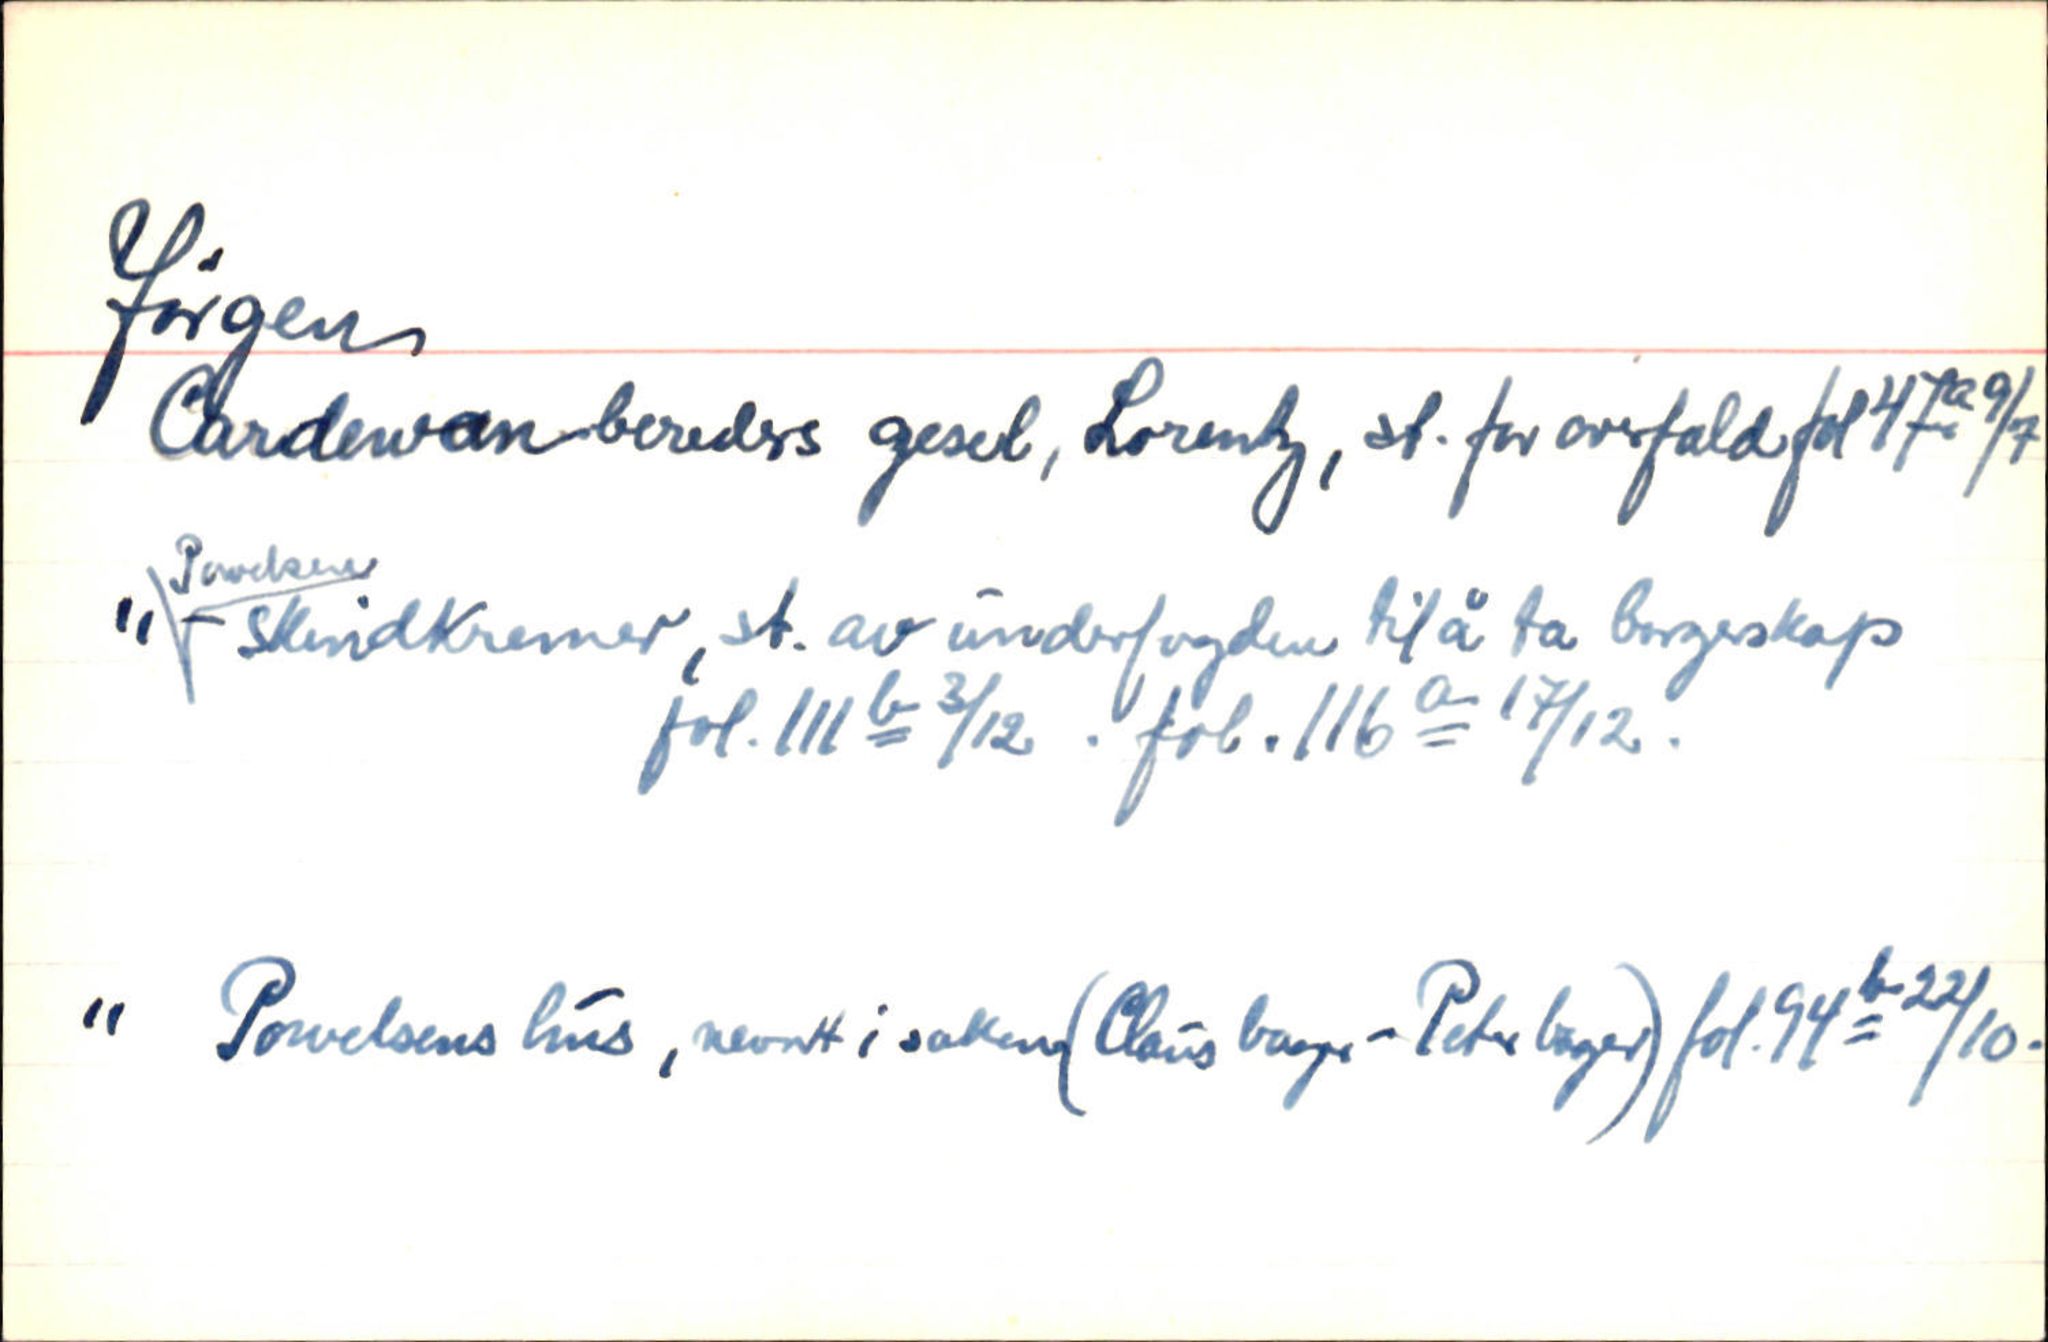 Jörgen
Cardewan-bereders gesel, Lorentz, st. for overfald fol 47a 9/7
Powelsen
" - skindkremer, st. av underfogden til å ta borgerskap
fol. 111 b 3/12 . fol. 116 a 17/12.
" Powelsens hus, nevnt i saken (Claus bager - Peter bager) fol. 94 b 22/10.